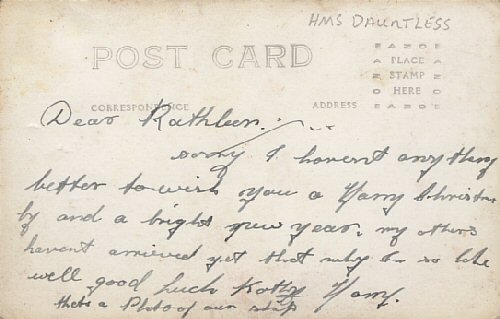 HMS DAUNTLESS
POST CARD
AZOE
PLACE
STAMP
HERE
AZOE
CORRESPONDENCE
ADDRESS
Dear Kathleen.
sorry I havent anything
better to wish you a Harry Christms
by and a bright new year, my others
havent arrieved yet that why I so like
well good luck Kathy Harry.
thats a Photo of our ship